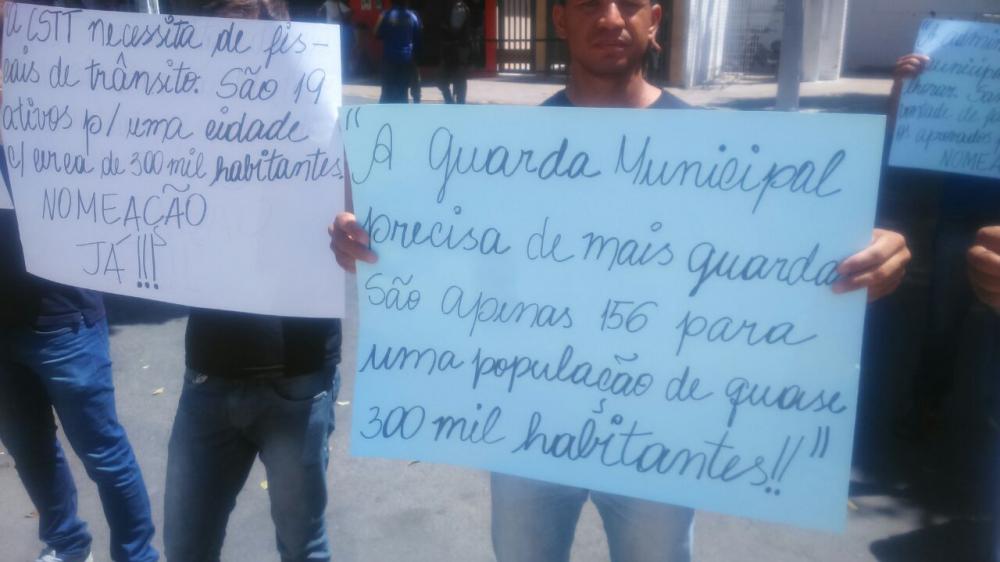 A CSTT necessita de fis-
cais de trânsito. São 19
ativos p/ uma cidade
c/ cerca de 300 mil habitantes
NOMEAÇÃO
JÁ!!!
"A guarda Municipal
precisa de mais guarda
São apenas 156 para
uma população de quase
300 mil habitantes!!"